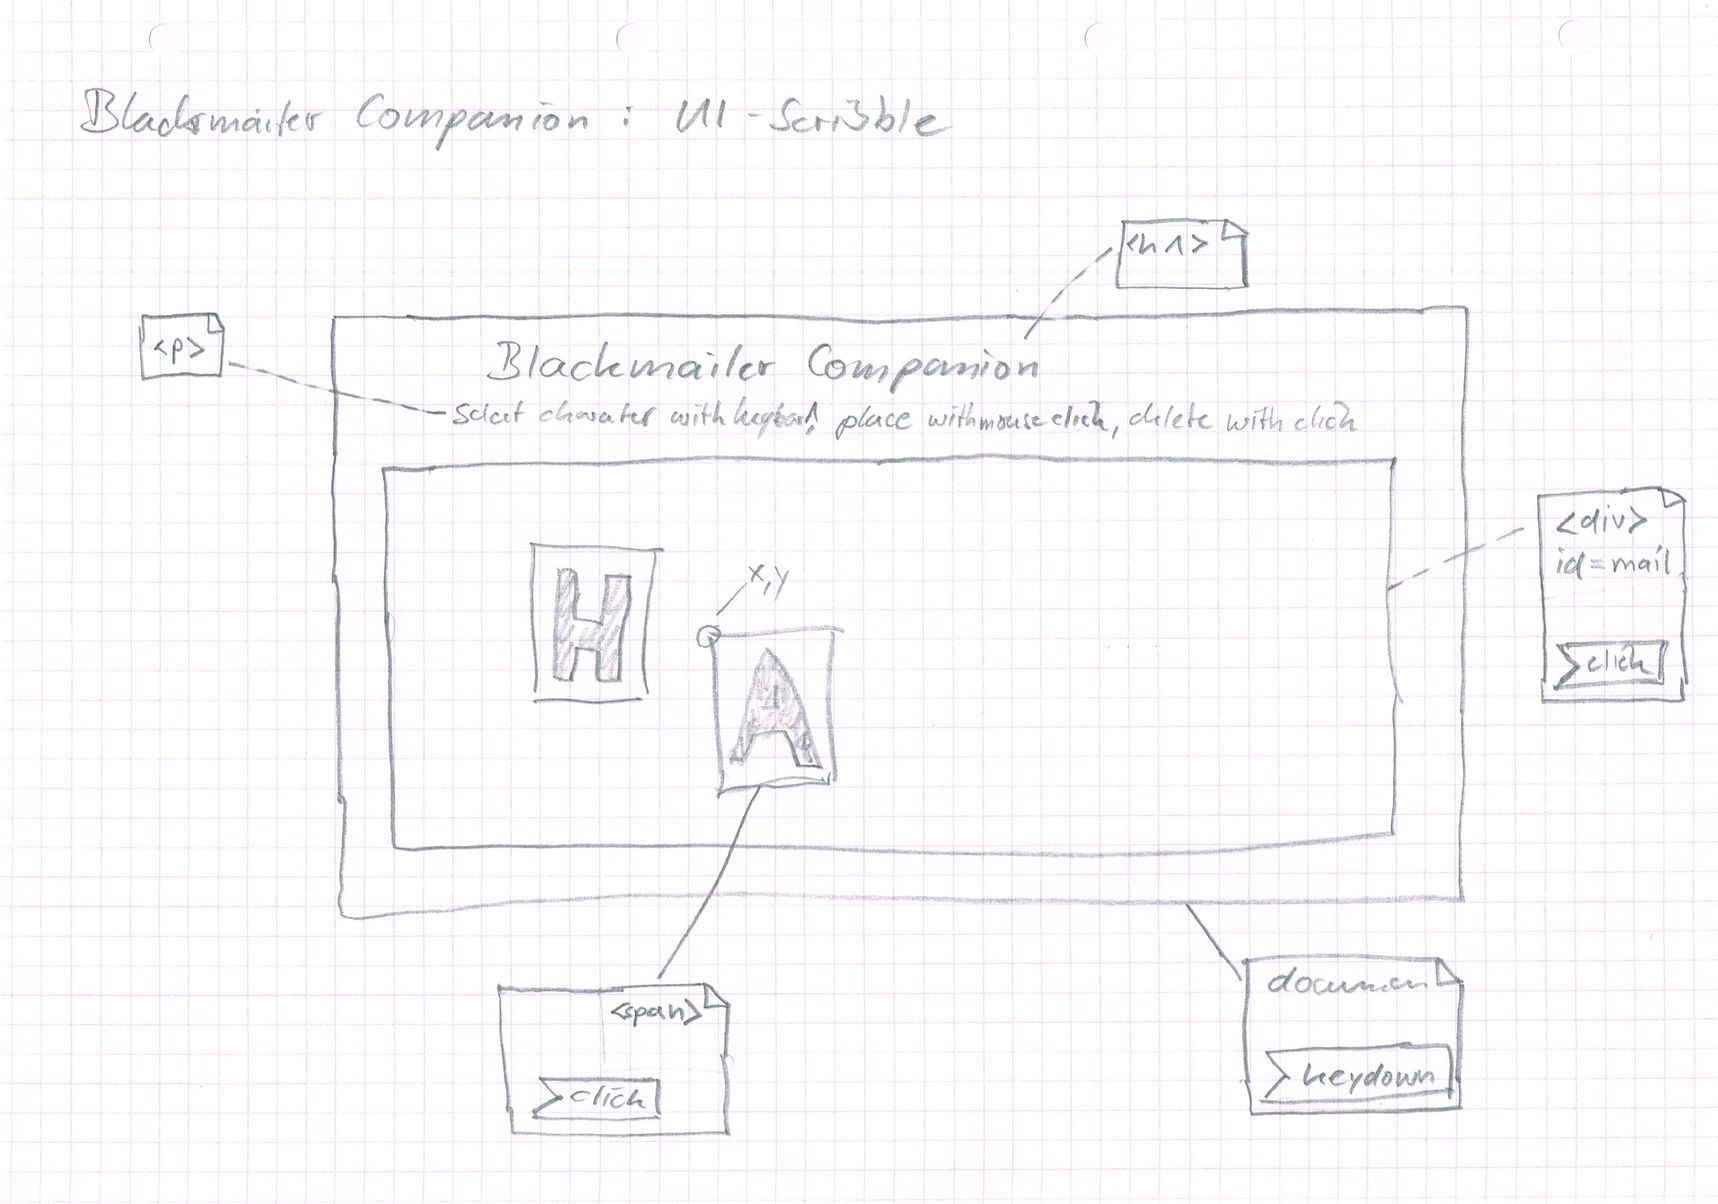 Blackmailer Companion : UI-Scribble
<h1>
<p>
Blackmailer Companion
Select character with keyboard, place with mouse click, delete with click
<div>
id=mail
click
H
x,y
A
<span>
click
document
keydown